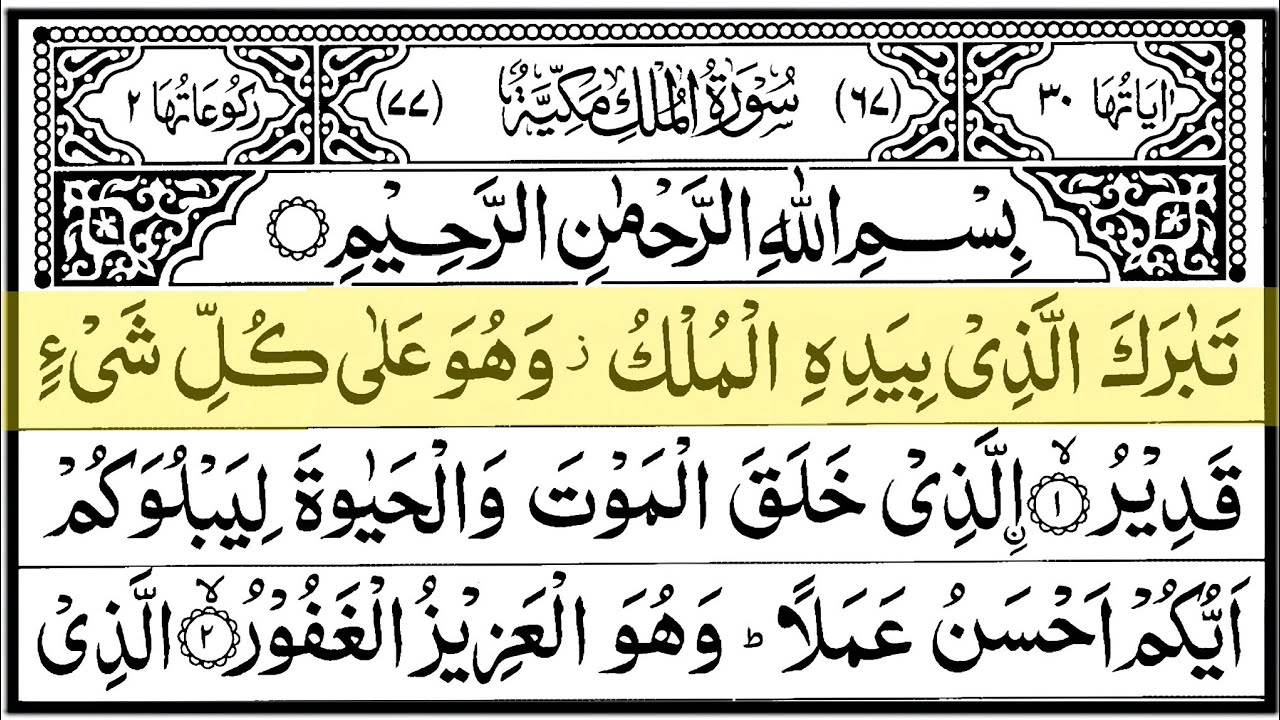 اٰيَاتُهَا ٣٠ (٦٧) سُوْرَةُ الْمُلْكِ مَكِّيَّةٌ (٧٧) رُكُوْعَاتُهَا ٢
بِسْمِ اللّٰهِ الرَّحْمٰنِ الرَّحِيْمِ
تَبٰرَكَ الَّذِیْ بِیَدِهِ الْمُلْكُ ز وَهُوَ عَلٰی كُلِّ شَیْءٍ
قَدِیْرُ ۙ﴿١﴾ اِ۟لَّذِیْ خَلَقَ الْمَوْتَ وَالْحَیٰوةَ لِیَبْلُوَكُمْ
اَیُّكُمْ اَحْسَنُ عَمَلًا ؕ وَهُوَ الْعَزِیْزُ الْغَفُوْرُ ۙ﴿٢﴾ الَّذِیْ